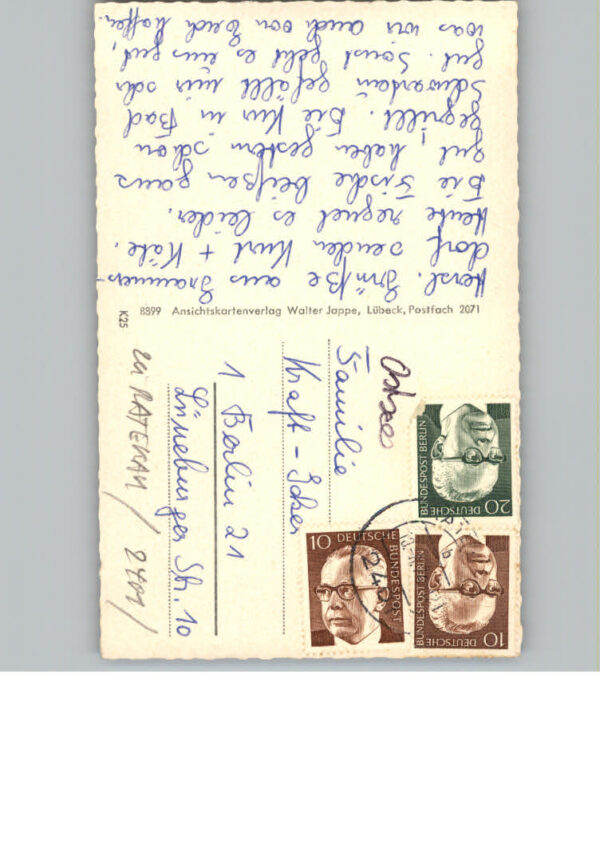 Herzl. Grüße aus Grammers-
dorf senden Kurt + Käte.
Heute regnet es leider.
Die Fische beißen ganz
gut, haben gestern schon
gegrillt. Die Kur in Bad
Schwartau gefällt mir sehr
gut. Sonst geht es uns gut,
was wir auch von Euch hoffen.
K25
8399 Ansichtskartenverlag Walter Jappe, Lübeck, Postfach 2071
Ostsee
Familie
Kraft -
1 Berlin 21
Lüneburger Str. 10
RATEKAU / 2401 /
20
DEUTSCHE
BUNDESPOST BERLIN
10
DEUTSCHE
BUNDESPOST
10
DEUTSCHE
BUNDESPOST BERLIN
2401